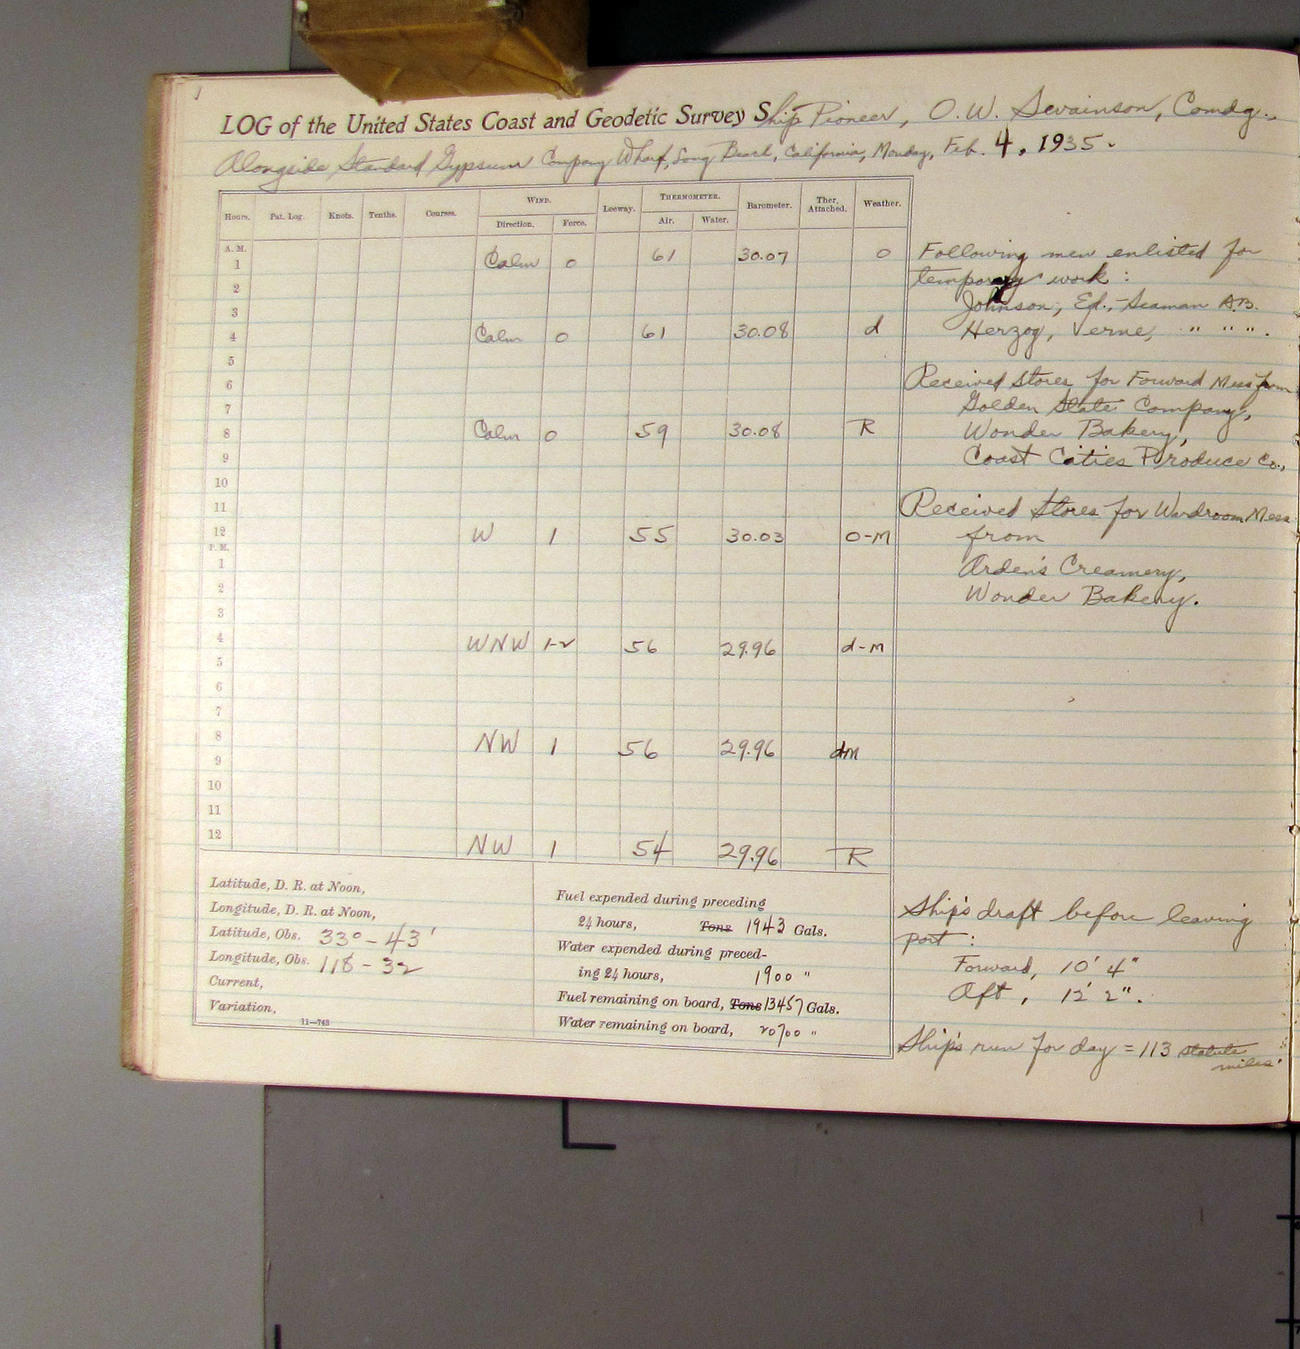 LOG of the United States Coast and Geodetic Survey Ship Pioneer, O. W. Swainson, Comdg.
Alongside Standard Gypsum Company Wharf, Long Beach, California, Monday, Feb. 4, 1935.
Hours. Pat. Log. Knots. Tenths. Courses. WIND. Leeway. THERMOMETER. Barometer. Ther. Attached. Weather.
Direction. Force. Air. Water.
A. M.
1 Calm 0 61 30.07 o
2
3
4 Calm 0 61 30.08 d
5
6
7
8 Calm 0 59 30.08 R
9
10
11
12 W 1 55 30.03 O-M
P. M.
1
2
3
4 WNW 1-2 56 29.96 d-m
5
6
7
8 NW 1 56 29.96 dm
9
10
11
12 NW 1 54 29.96 R
Following men enlisted for
temporary work :
Johnson, Ed., Seaman A.B.
Herzog, Verne, " " ".
Received Stores for Forward Mess from
Golden State Company,
Wonder Bakery,
Coast Cities Produce Co.,
Received Stores for Wardroom Mess
from
Arden's Creamery,
Wonder Bakery.
Latitude, D. R. at Noon,
Longitude, D. R. at Noon,
Latitude, Obs. 33° - 43'
Longitude, Obs. 118 - 32
Current,
Variation,
11—743
Fuel expended during preceding
24 hours, Tons 1943 Gals.
Water expended during preced-
ing 24 hours, 1900 "
Fuel remaining on board, Tons 13457 Gals.
Water remaining on board, 20700 "
Ship's draft before leaving
port :
Forward, 10' 4"
Aft, 12' 2".
Ship's run for day = 113 statute
miles